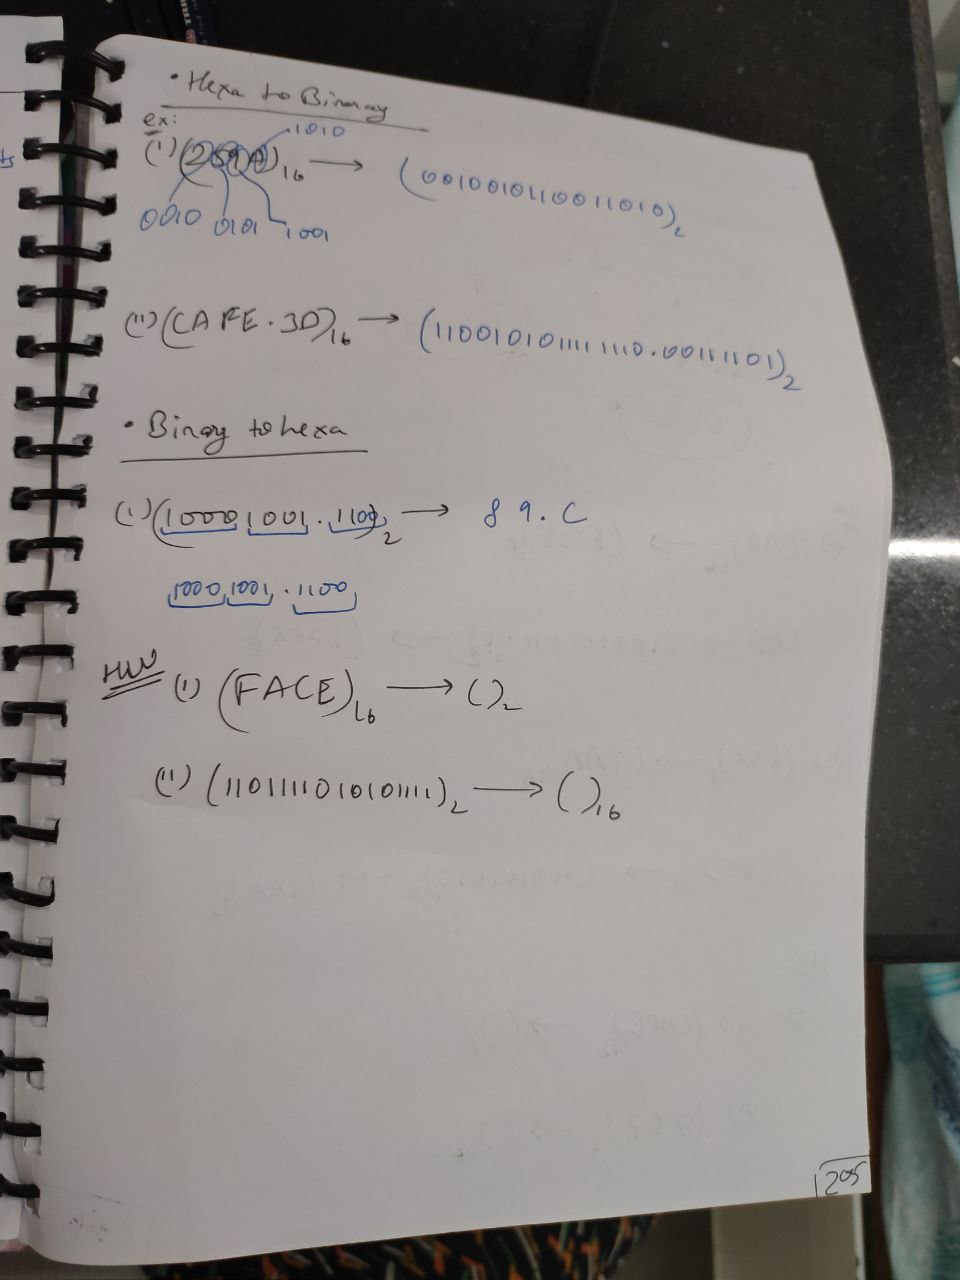 • Hexa to Binary
ex:
1010
(i) (259A)16 → (0010010110011010)2
0010 0101 1001
(ii) (CAFE.3D)16 → (1100101011111110.00111101)2
• Binary to hexa
(i) (10001001.1100)2 → 89.C
1000 1001 . 1100
HW (i) (FACE)16 → ()2
(ii) (1101111010101111)2 → ()16
205